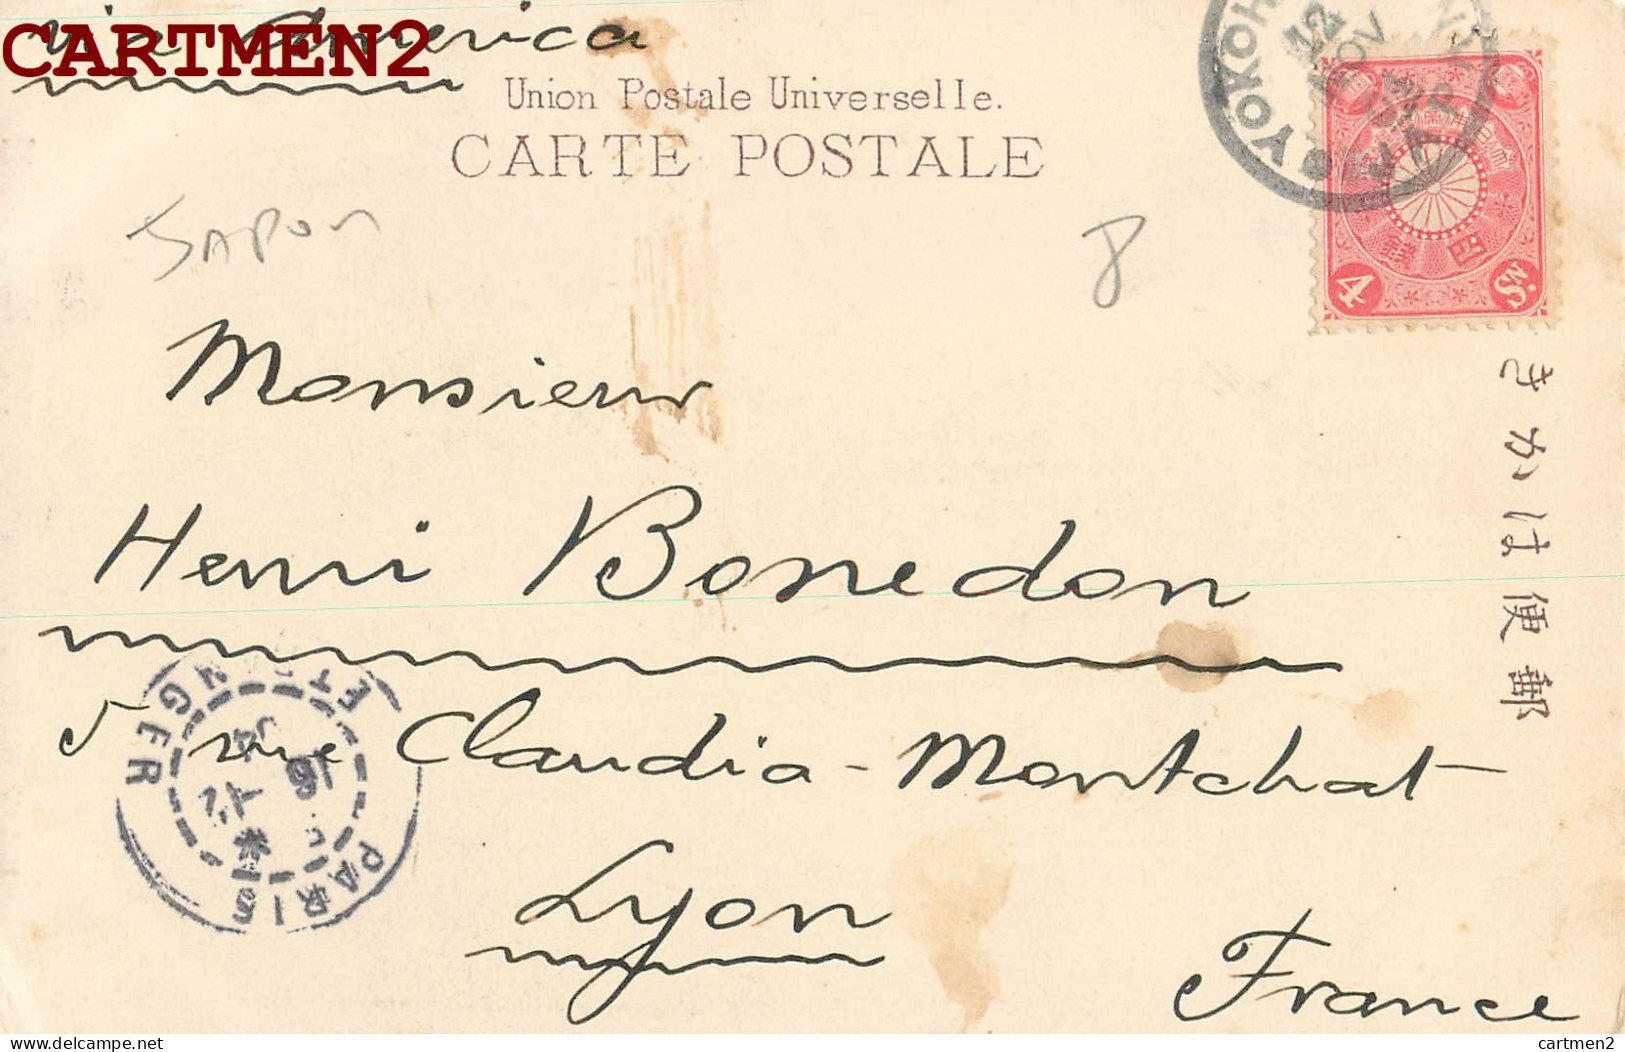 via America
CARTMEN2
Union Postale Universelle.
CARTE POSTALE
Japon
8
4
Sn.
きかは便郵
Monsieur
Henri Bonedon
5 rue Claudia-Montchat
Lyon
France
PARIS ETRANGER
16 12
delcampe.net
cartmen2